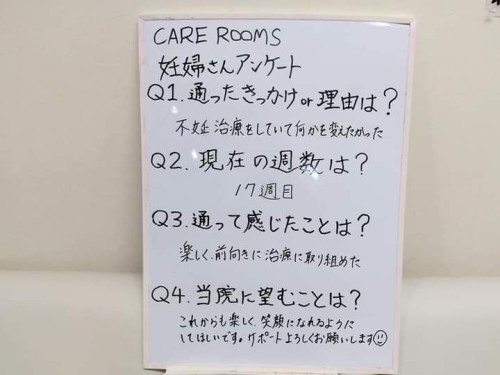 CARE ROOMS
妊婦さんアンケート
Q1.通ったきっかけor理由は？
不妊治療をしていて何かを変えたかった
Q2.現在の週数は？
17週目
Q3.通って感じたことは？
楽しく、前向きに治療に取り組めた
Q4.当院に望むことは？
これからも楽しく、笑顔になれるように
してほしいです。サポートよろしくお願いします☺